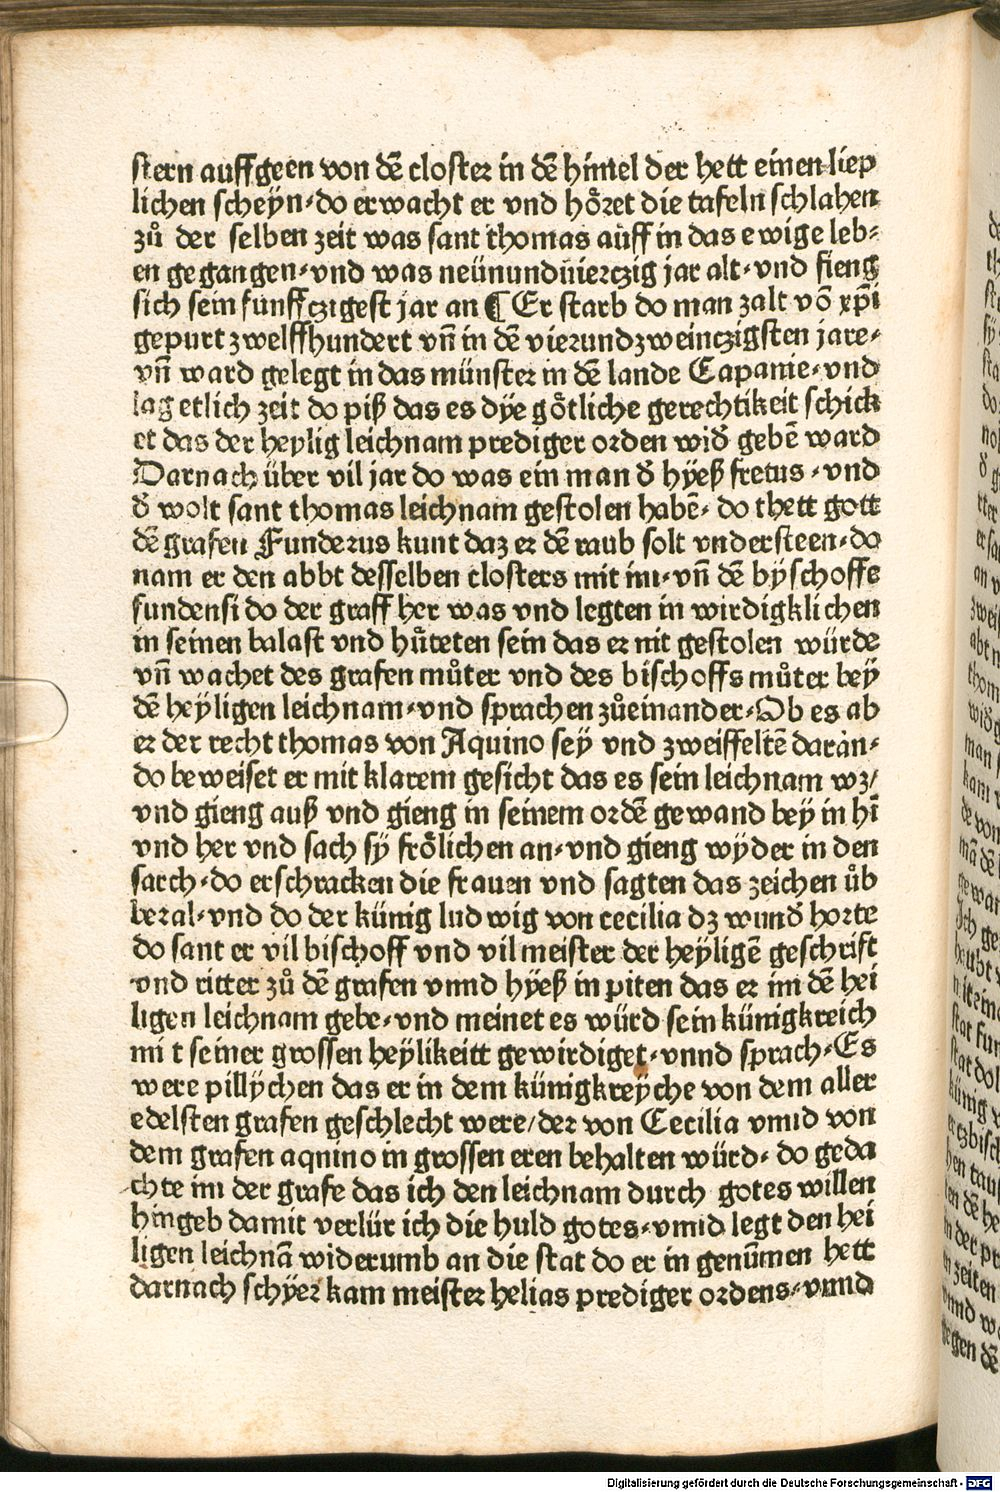 stern auffgeen von dē closter in dē himel der hett einen liep
lichen scheyn· do erwacht er vnd hoͤret die tafeln schlahen
zuͦ der selben zeit was sant thomas auff in das ewige leb⸗
en gegangen· vnd was neünundüierczig jar alt· vnd fieng
sich sein funffczigest jar an ¶ Er starb do man zalt vō xp̄i
gepurt zwelffhundert vn̄ in dē vierundzweinczigsten jare·
vn̄ ward gelegt in das münster in dē lande Capanie· vnd
lag etlich zeit do piß das es dÿe goͤtliche gerechtikeit schick
et das der heylig leichnam prediger orden wid̄ gebē ward
Darnach über vil jar do was ein man d̄ hÿeß fretus · vnd
d̄ wolt sant thomas leichnam gestolen habē· do thett gott
dē grafen Funderus kunt daz er dē raub solt vndersteen· do
nam er den abbt desselben closters mit im· vn̄ dē byschoffe
fundensi do der graff her was vnd legten in wirdigklichen
in seinen balast vnd huͤteten sein das er nit gestolen würde
vn̄ wachet des grafen muͦter vnd des bischoffs muͦter bey
dē heyligen leichnam· vnd sprachen zuͦeinander· Ob es ab
er der recht thomas von Aquino sey vnd zweiffeltē daran·
do beweiset er mit klarem gesicht das es sein leichnam wz/
vnd gieng auß vnd gieng in seinem ordē gewand bey in hī
vnd her vnd sach sÿ froͤlichen an· vnd gieng wyder in den
sarch· do erschracken die frauen vnd sagten das zeichen uͤb
beral· vnd do der künig ludwig von cecilia dz wund̄ horte
do sant er vil bischoff vnd vil meister der heyligē geschrift
vnd ritter zuͦ dē grafen vnnd hÿeß in piten das er im dē hei
ligen leichnam gebe· vnd meinet es würd sein künigkreich
mit seiner grossen heylikeitt gewirdiget· vnnd sprach· Es
were pillychen das er in dem künigkreyche von dem aller
edelsten grafen geschlecht were/ der von Cecilia vnnd von
dem grafen aqnino in grossen eren behalten würd· do geda
chte im der grafe das ich den leichnam durch gotes willen
hingeb damit verlür ich die huld gotes· vnnd legt den hei
ligen leichnā widerumb an die stat do er in genūmen hett
darnach schyer kam meister helias prediger ordens· vnnd
Digitalisierung gefördert durch die Deutsche Forschungsgemeinschaft - DFG